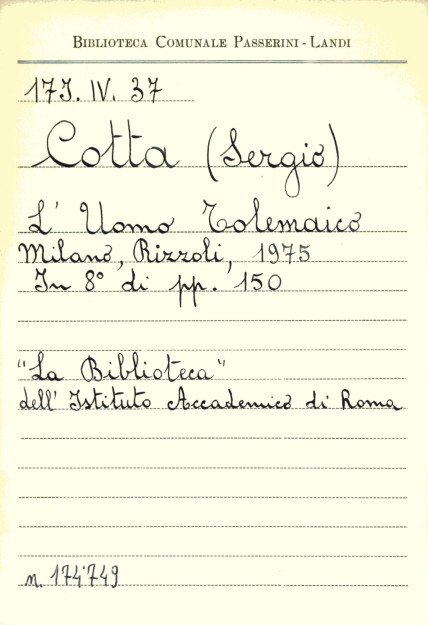 BIBLIOTECA COMUNALE PASSERINI - LANDI
17J. IV. 37
Cotta (Sergio)
L' Uomo Tolemaico
Milano, Rizzoli, 1975
In 8° di pp. 150
"La Biblioteca"
dell' Istituto Accademico di Roma
n. 174'749